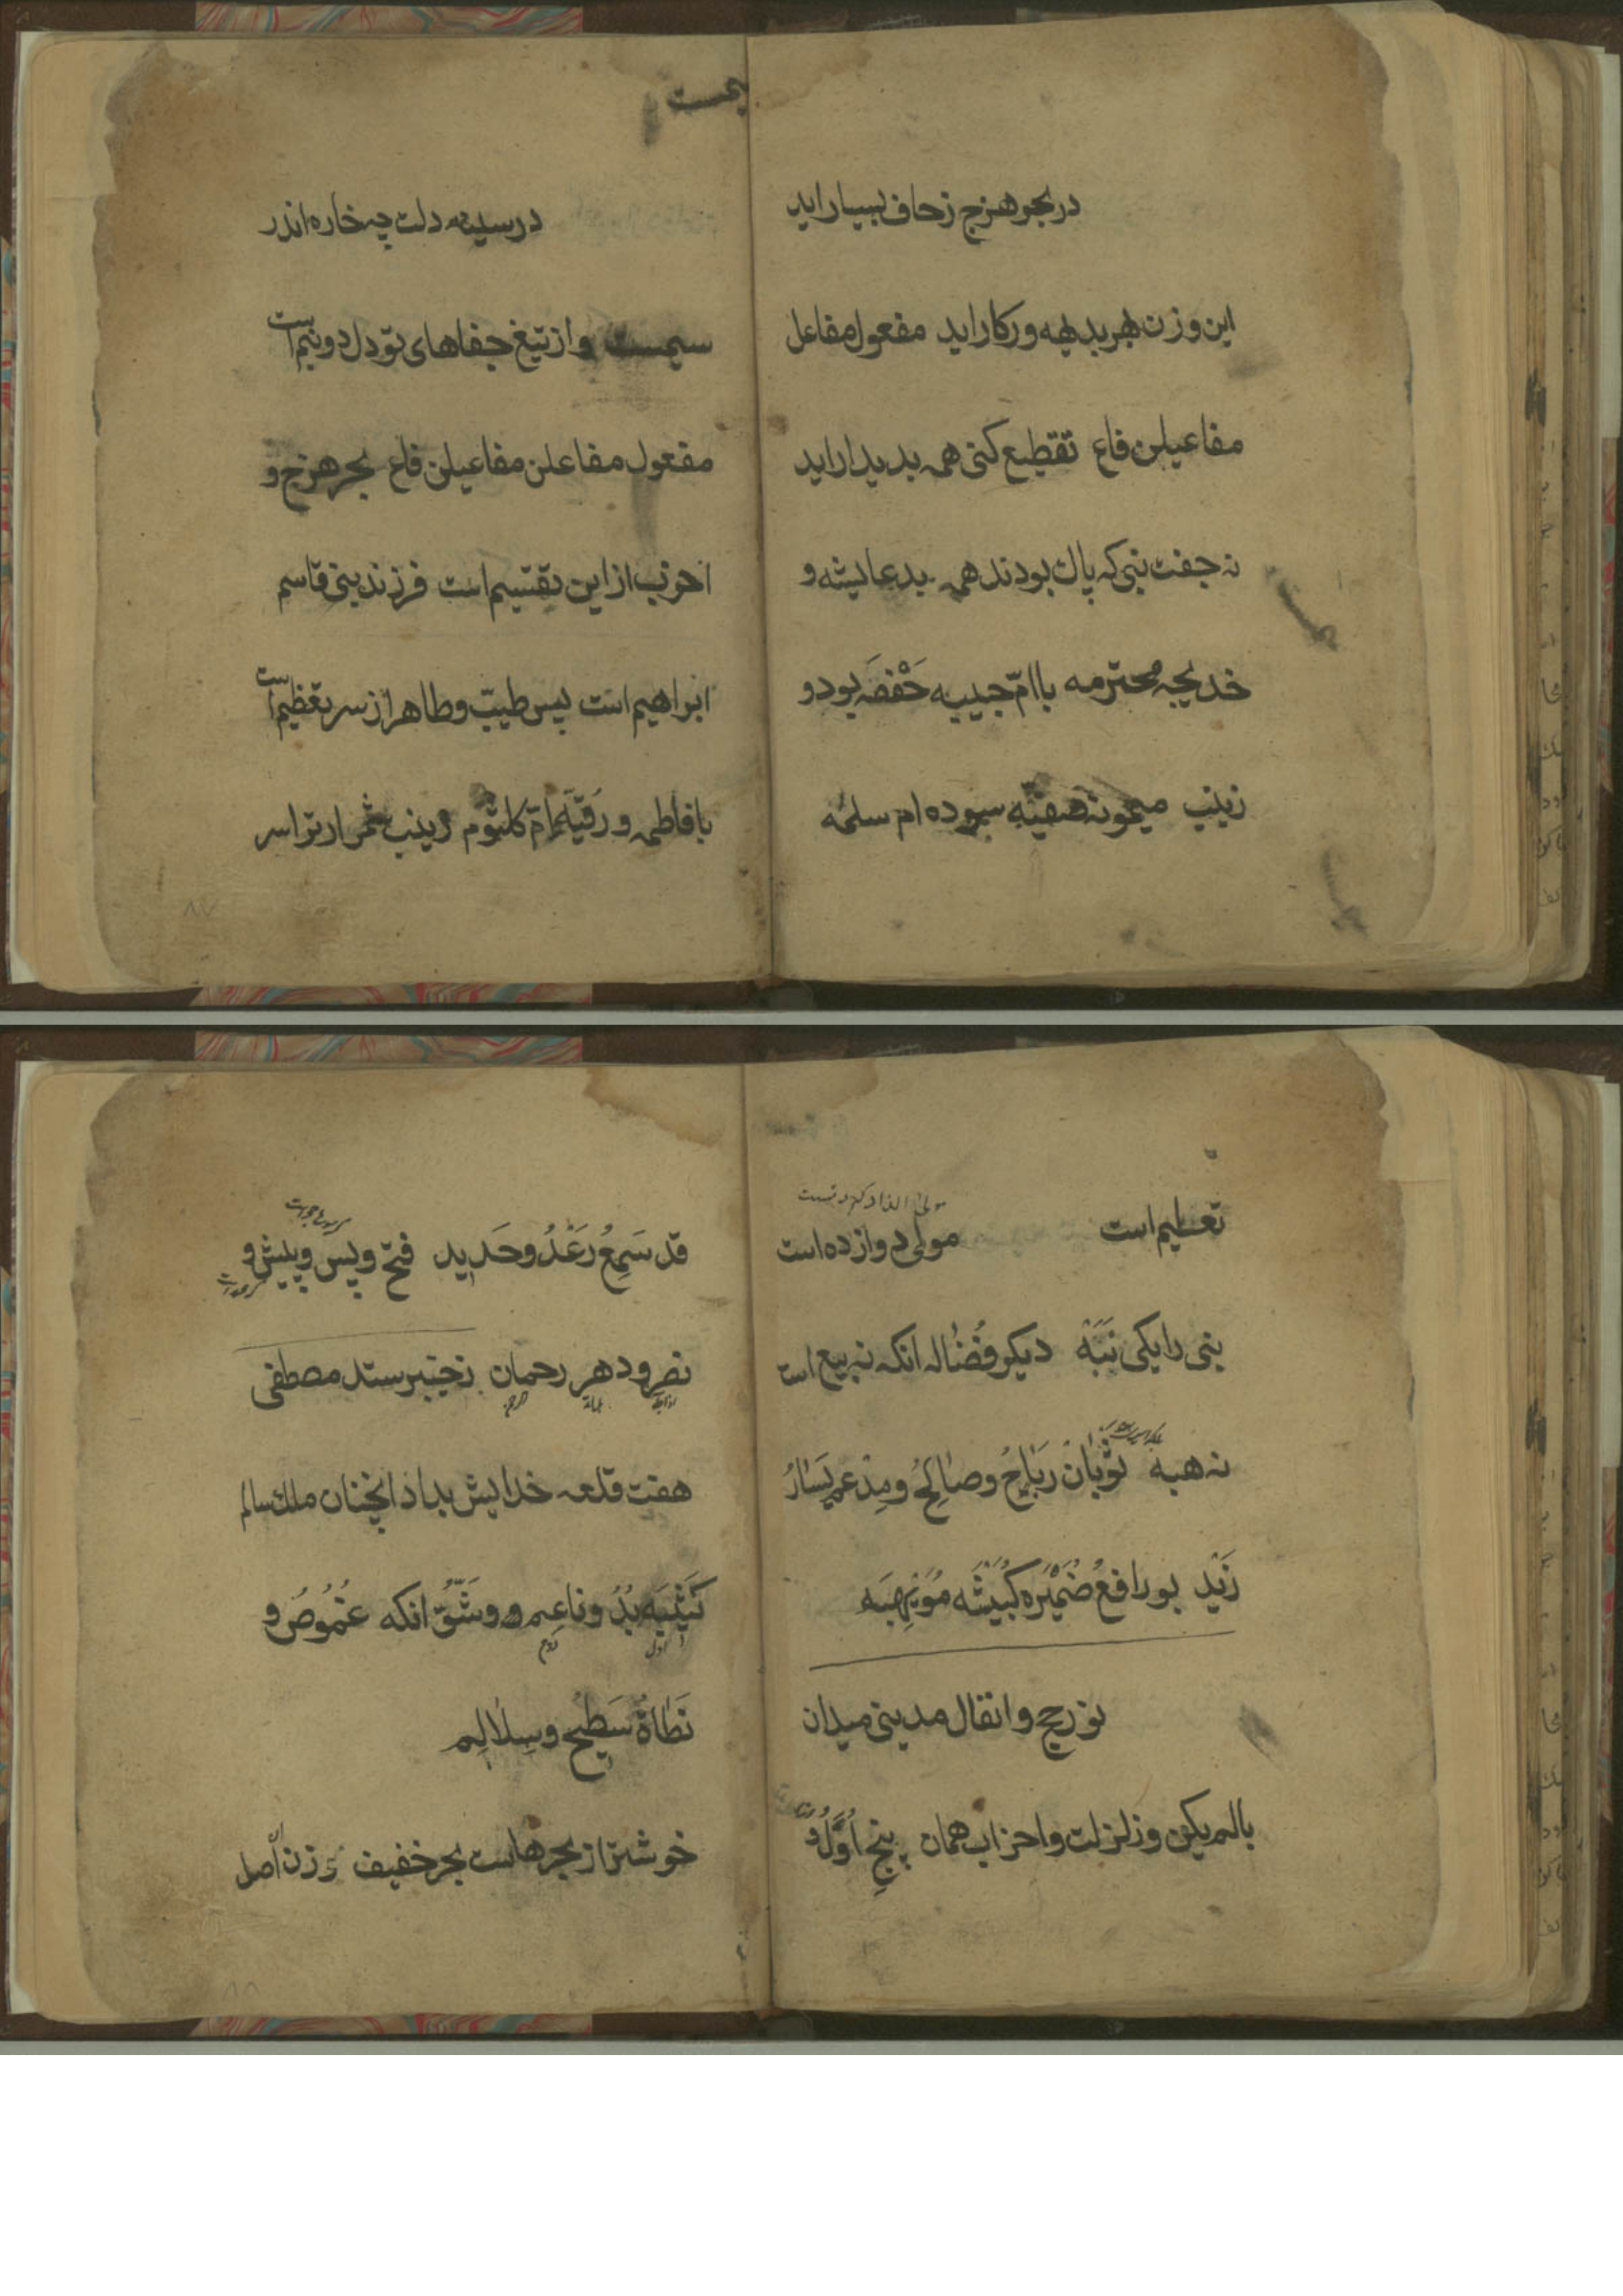 در بحر هزج زحاف بسیار اید
این وزن بهر بدیهه ور کار اید مفعول مفاعل
مفاعیلن فاع تقطیع کنی همه بدیدار اید
نه جفت نبی که پاك بودند همه بد عایشه و
خدیجه محترمه با امّ حبیبه حَفْصَه بود و
زینب میمونه صفیّه سوده ام سلمه
یمست
در سینه دلت چه خاره اندر
سیمست و از تیغ جفاهای تو دل دو نیم است
مفعول مفاعلن مفاعیلن فاع بحر هزج و
اخرب از این تقسیم است فرزند نبی قاسم
ابراهیم است پس طیّب و طاهر از سر تعظیم است
با فاطمه و رُقیَّه امّ کلثوم زینب شمر ار ترا سر
تعلیم است مولی دوازده است
نبی را یکی نَبَهْ دیکر فُضٰاله انکه نه بیع است
نه هبه ثَوْبٰان رَبٰاحُ وصٰالِحُ ومِدْعم یَسٰارُ
زَیْد بو رافعُ ضُمَیْرَه کُبَیْشَه مُوَیْهِبَه
نو رحج و انفال مدینی میدان
با لم یکن و زلزلت و احزاب همان پنجِ اَوَّلُ
قد سَمِعُ رَعْدُ وحَدید فتح و پس و پیش و
نصر و دهر رحمان ز خیبر ستد مصطفی
هفت قلعه خدایش بداد انچنان ملك سالم
کَثیبَه بُدُ و ناعِم و وشَقُّ انکه غمُوُصُ و
نَطٰاةُ سَطِیحُ وسِلٰالِم
خوشتر از بحرهاست بحر خفیف وزن اصل